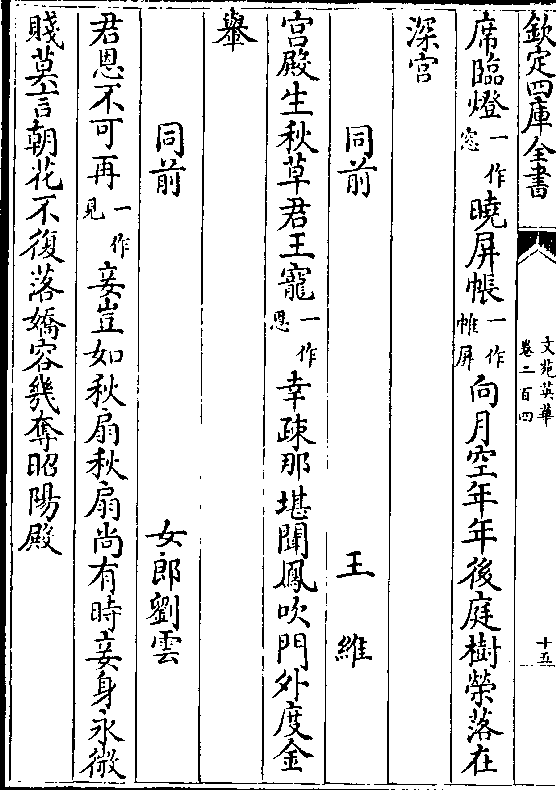 欽定四庫全書
文苑英華
卷二百四
十五
席臨燈一作窓曉屏帳一作帷屏向月空年年後庭樹榮落在
深宫
同前 王維
宫殿生秋草君王寵一作恩幸疎那堪聞鳳吹門外度金
轝
同前 女郎劉雲
君恩不可再一作見妾豈如秋扇秋扇尚有時妾身永微
賤莫言朝花不復落嬌容幾奪昭陽殿